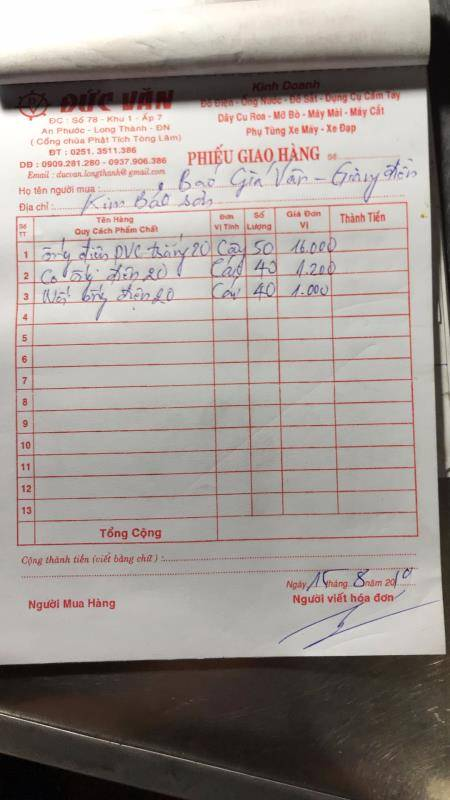 ĐỨC VĂN
ĐC : Số 78 - Khu 1 - Ấp 7
An Phước - Long Thành - ĐN
( Cổng chùa Phật Tích Tòng Lâm)
ĐT : 0251. 3511.186
DĐ : 0909.281.280 - 0937.906.386
Email : ducvan.longthanh@gmail.com
Kinh Doanh
Đồ Điện - Ống Nước - Đồ Sắt - Dụng Cụ Cầm Tay
Dây Cu Roa - Mỡ Bò - Máy Mài - Máy Cắt
Phụ Tùng Xe Máy - Xe Đạp
PHIẾU GIAO HÀNG Số
Họ tên người mua : Báo Giá Vân -
Địa chỉ : Kim Bảo Sơn
Số TT Tên Hàng Quy Cách Phẩm Chất Đơn Vị Tính Số Lượng Giá Đơn Vị Thành Tiền
1 ống điện PVC trắng 20 Cây 50 16.000
2 Co ống điện 20 Cái 40 1.200
3 Nối ống điện 20 Cái 40 1.000
4
5
6
7
8
9
10
11
12
13
Tổng Cộng
Cộng thành tiền (viết bằng chữ ) :
Ngày 15 tháng 8 năm 20
Người Mua Hàng
Người viết hóa đơn